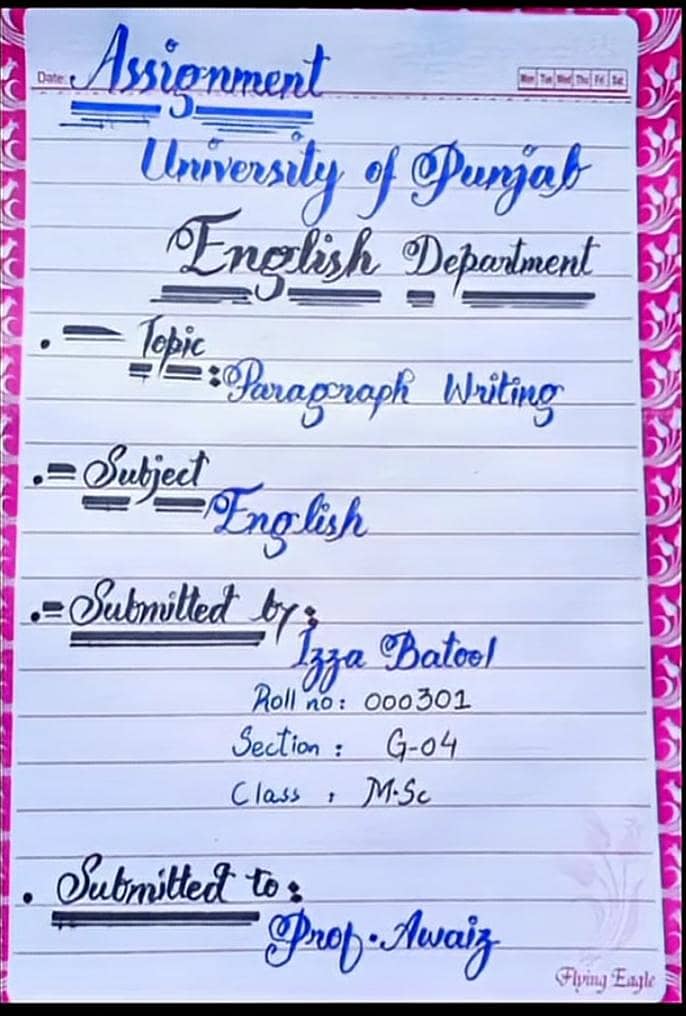 Date:
Assignment
Mon Tue Wed Thu Fri Sat
University of Punjab
English Department
Topic
:Paragraph Writing
Subject
English
Submitted by:
Izza Batool
Roll no: 000301
Section : G-04
Class : M.Sc
Submitted to:
Prof. Awaiz
Flying Eagle